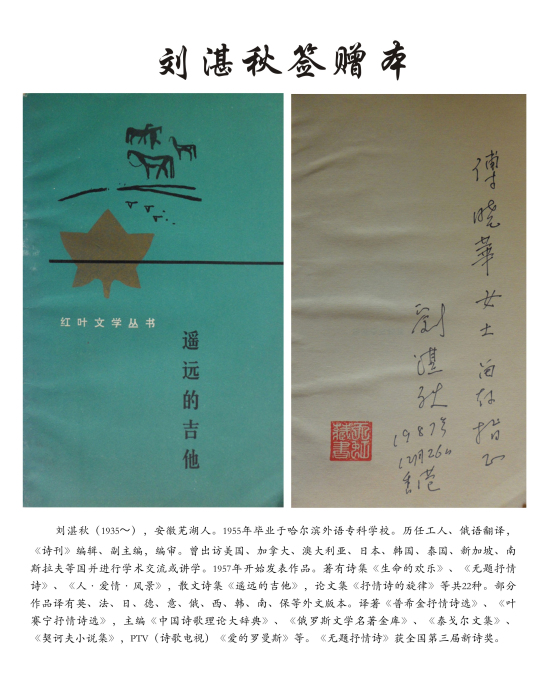 刘湛秋签赠本
红叶文学丛书
遥远的吉他
傅晓華女士
指正
劉湛秋
1987年
12月26日
香港
藏書
刘湛秋（1935～），安徽芜湖人。1955年毕业于哈尔滨外语专科学校。历任工人、俄语翻译，
《诗刊》编辑、副主编，编审。曾出访美国、加拿大、澳大利亚、日本、韩国、泰国、新加坡、南
斯拉夫等国并进行学术交流或讲学。1957年开始发表作品。著有诗集《生命的欢乐》、《无题抒情
诗》、《人·爱情·风景》，散文诗集《遥远的吉他》，论文集《抒情诗的旋律》等共22种。部分
作品译有英、法、日、德、意、俄、西、韩、南、保等外文版本。译著《普希金抒情诗选》、《叶
赛宁抒情诗选》，主编《中国诗歌理论大辞典》、《俄罗斯文学名著金库》、《泰戈尔文集》、
《契诃夫小说集》，PTV（诗歌电视）《爱的罗曼斯》等。《无题抒情诗》获全国第三届新诗奖。